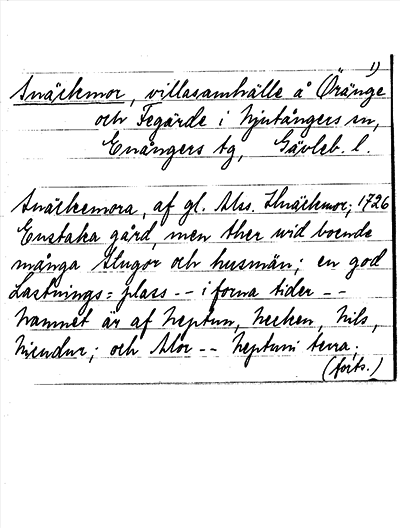 1)
Snäckmor, villasamhälle å Öränge
och Fegärde i Njutångers sn,
Enångers tg, Gävleb. l.
Snäckemora, af gl. Mss. Snäckmor; 1726
Enstaka gård, men ther wid boende
många Stugor och husmän; en god
Lastnings=plass -- i forna tider --
Namnet är af Neptun, Necken, Nils,
; och Mor -- Neptuni terra.
(forts.)